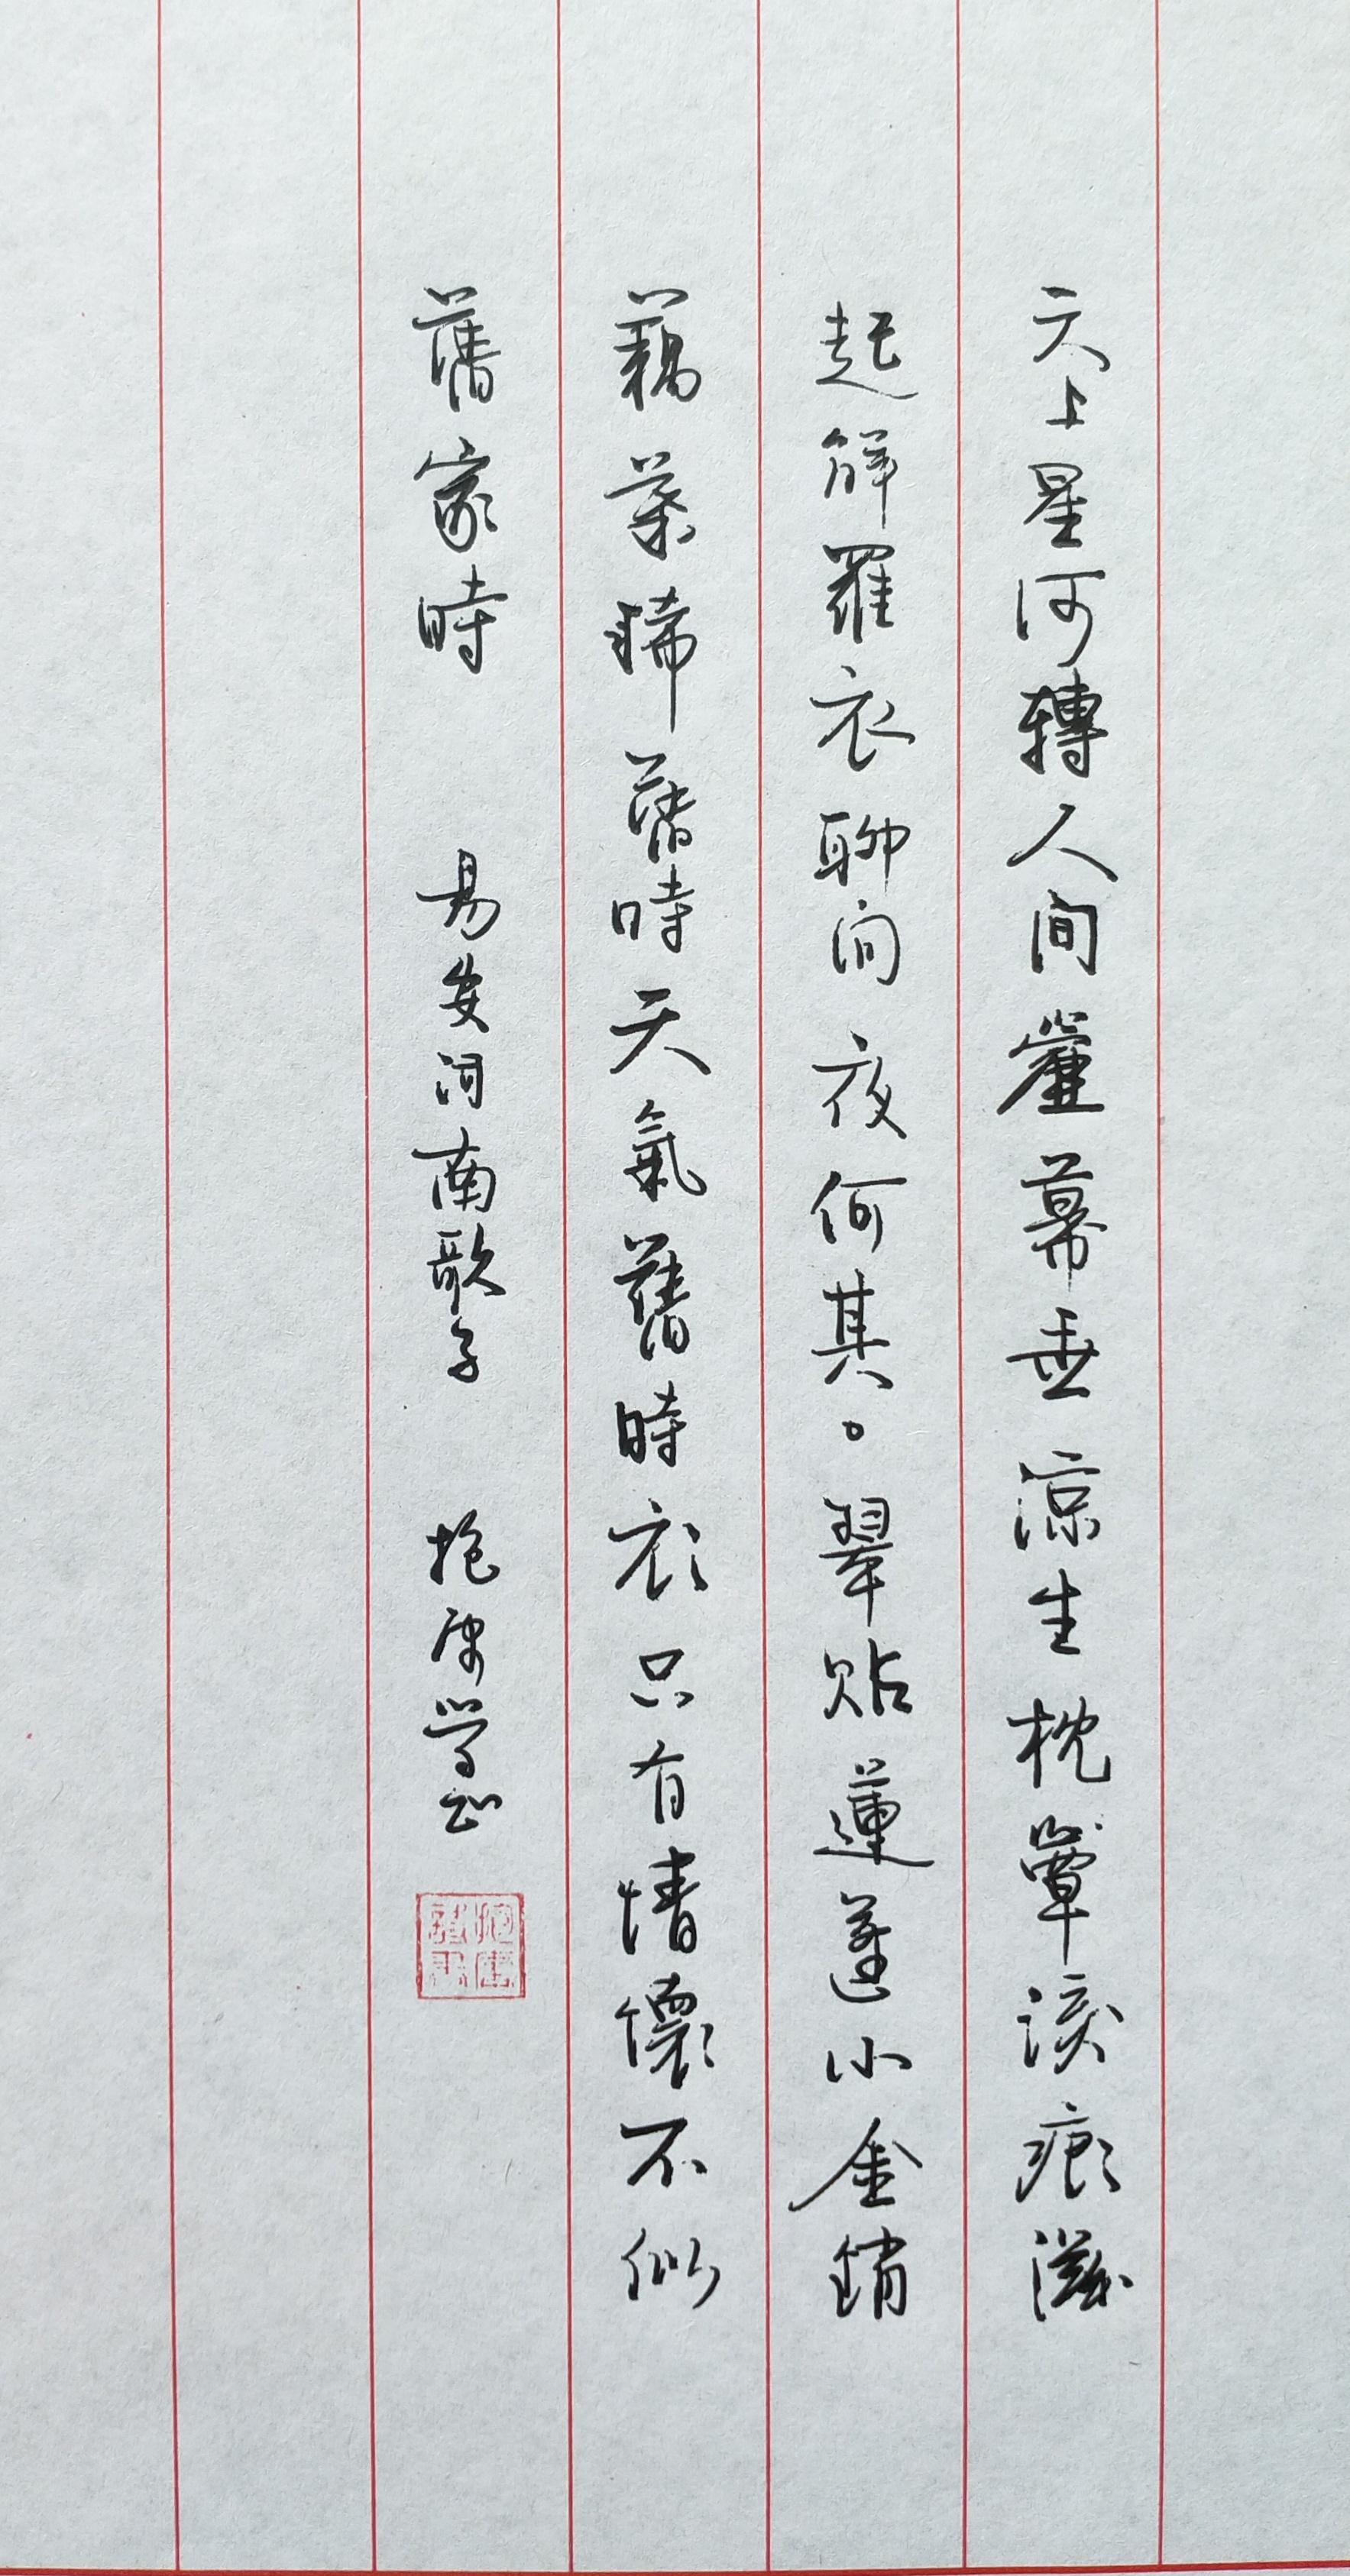 天上星河轉人間簾幕垂涼生枕簟淚痕滋
起解羅衣聊问夜何其。翠貼蓮蓬小金銷
藕葉稀舊時天氣舊時衣只有情懷不似
舊家時 易安词南歌子 抱 學书